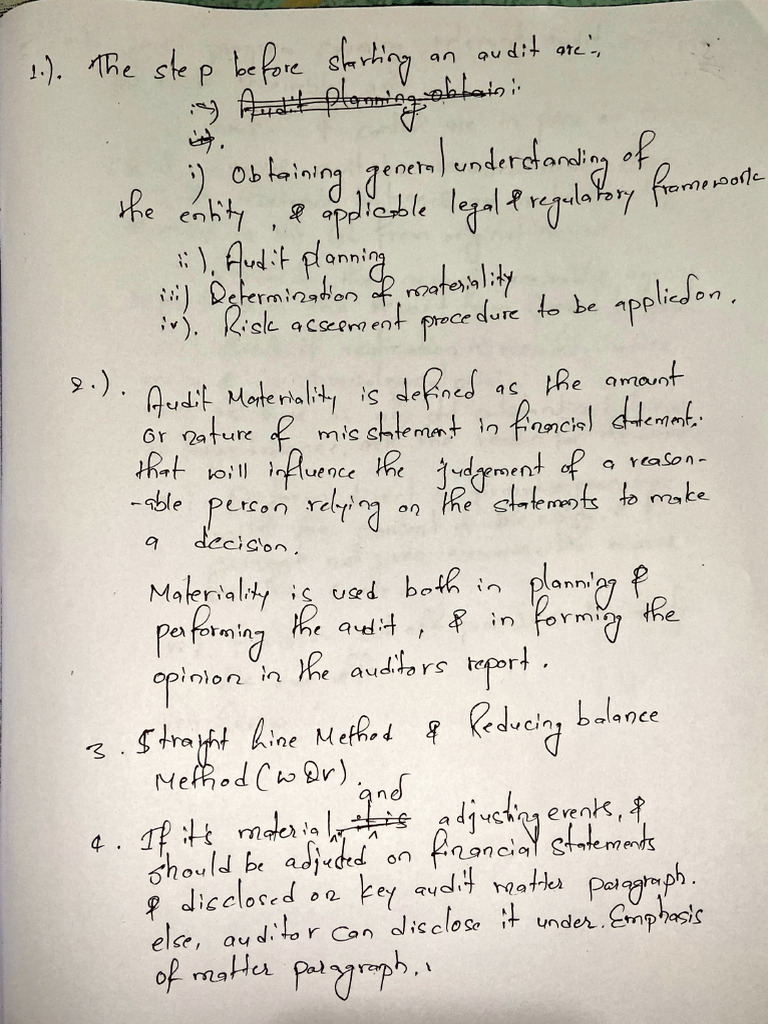 1.). The step before starting an audit are:-
i) Audit Planning obtain:
ii).
i) Obtaining general understanding of
the entity, & applicable legal & regulatory framework
ii). Audit planning
iii) Determination of materiality
iv). Risk assesment procedure to be applied on.
2.). Audit Materiality is defined as the amount
or nature of misstatement in financial statement.
that will influence the judgement of a reason-
-able person relying on the statements to make
a decision.
Materiality is used both in planning &
performing the audit, & in forming the
opinion in the auditors report.
3. Straight Line Method & Reducing balance
Method (WDV).
4. If it's material, and adjusting events, &
should be adjusted on financial statements
& disclosed on key audit matter paragraph.
else, auditor can disclose it under. Emphasis
of matter paragraph.